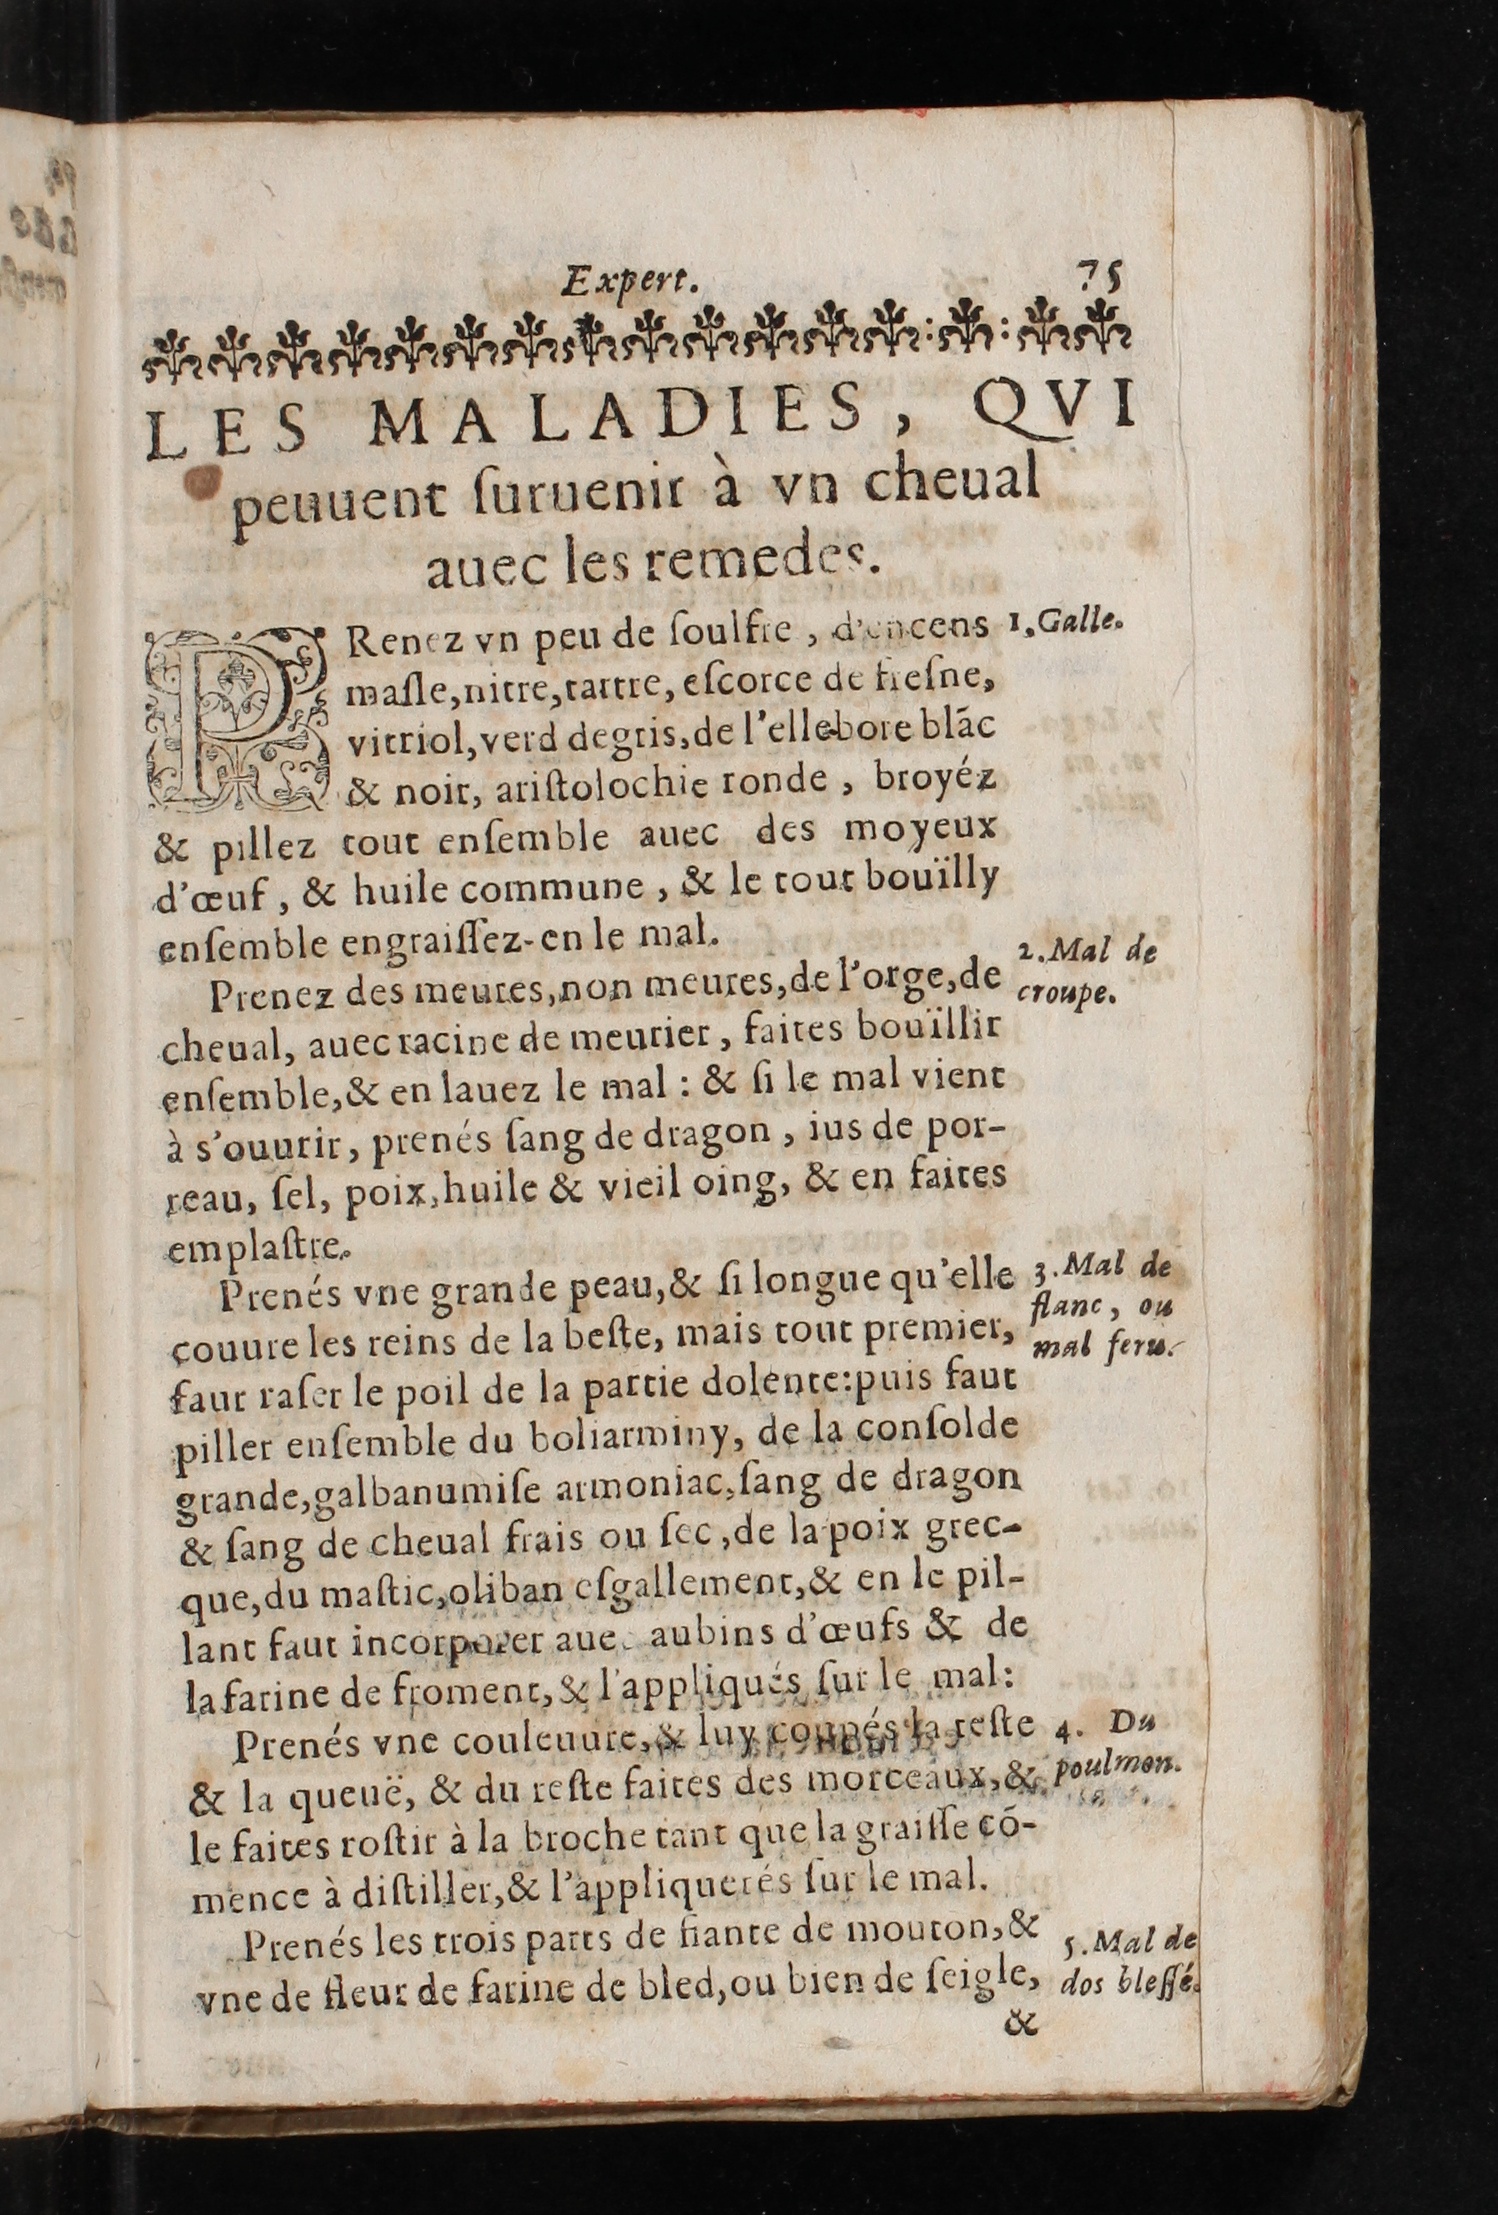 Expert. 75
LES MALADIES, QVI
peuuent ſuruenir à vn cheual
auec les remedes.
PRenez vn peu de ſoulfre, d'encens
1. Galle.
maſle, nitre, tartre, eſcorce de freſne,
vitriol, verd degris, de l'ellebore blãc
& noir, ariſtolochie ronde, broyéz
& pillez tout enſemble auec des moyeux
d'œuf, & huile commune, & le tout bouïlly
enſemble engraiſſez-en le mal.
Prenez des meures, non meures, de l'orge, de
2. Mal de
croupe.
cheual, auec racine de meurier, faites bouïllir
enſemble, & en lauez le mal : & ſi le mal vient
à s'ouurir, prenés ſang de dragon, ius de por-
reau, ſel, poix, huile & vieil oing, & en faites
emplaſtre.
Prenés vne grande peau, & ſi longue qu'elle
3. Mal de
flanc, ou
mal feru.
couure les reins de la beſte, mais tout premier,
faut raſer le poil de la partie dolente: puis faut
piller enſemble du boliarminy, de la conſolde
grande, galbanumiſe armoniac, ſang de dragon
& ſang de cheual frais ou ſec, de la poix grec-
que, du maſtic, oliban eſgallement, & en le pil-
lant faut incorporer auec aubins d'œufs & de
la farine de froment, & l'appliqués ſur le mal:
Prenés vne couleuure, & luy coupés la teſte
4. Du
poulmon.
& la queuë, & du reſte faites des morceaux, &
le faites roſtir à la broche tant que la graiſſe cõ-
mence à diſtiller, & l'appliquerés ſur le mal.
Prenés les trois parts de fiante de mouton, &
5. Mal de
dos bleſſé.
vne de fleur de farine de bled, ou bien de ſeigle,
&